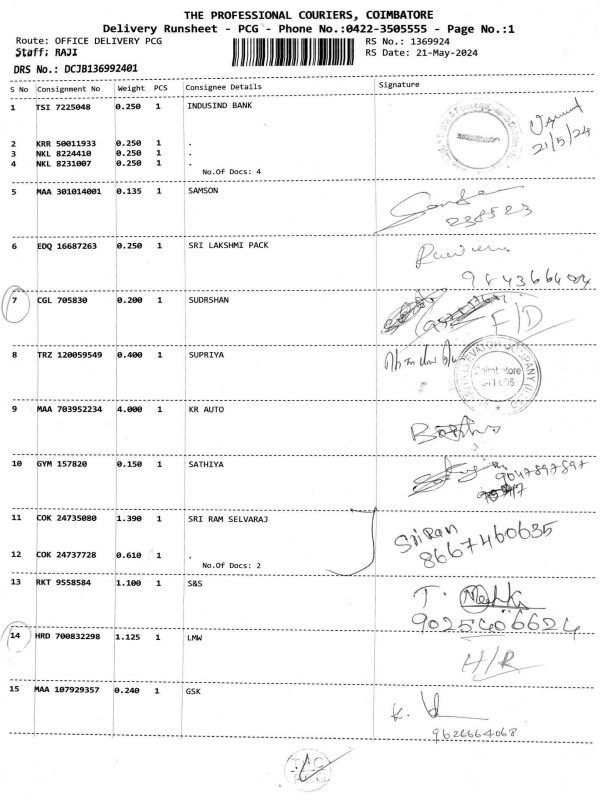 THE PROFESSIONAL COURIERS, COIMBATORE
Delivery Runsheet - PCG - Phone No.:0422-3505555 - Page No.:1
Route: OFFICE DELIVERY PCG
RS No.: 1369924
Staff: RAJI
RS Date: 21-May-2024
DRS No.: DCJB136992401
S No Consignment No Weight PCS Consignee Details Signature
1 TSI 7225048 0.250 1 INDUSIND BANK
21/5/24
2 KRR 50011933 0.250 1 .
3 NKL 8224410 0.250 1 .
4 NKL 8231007 0.250 1 .
No.Of Docs: 4
5 MAA 301014001 0.135 1 SAMSON
238523
6 EDQ 16687263 0.250 1 SRI LAKSHMI PACK
7 CGL 705830 0.200 1 SUDRSHAN
F/D
8 TRZ 120059549 0.400 1 SUPRIYA
Coimbatore
9 MAA 703952234 4.000 1 KR AUTO
10 GYM 157820 0.150 1 SATHIYA
9047897897
11 COK 24735080 1.390 1 SRI RAM SELVARAJ
Sri Ran
8667460635
12 COK 24737728 0.610 1 .
No.Of Docs: 2
13 RKT 9558584 1.100 1 S&S
T.
9025406624
14 HRD 700832298 1.125 1 LMW
H/R
15 MAA 107929357 0.240 1 GSK
K.
9626664068